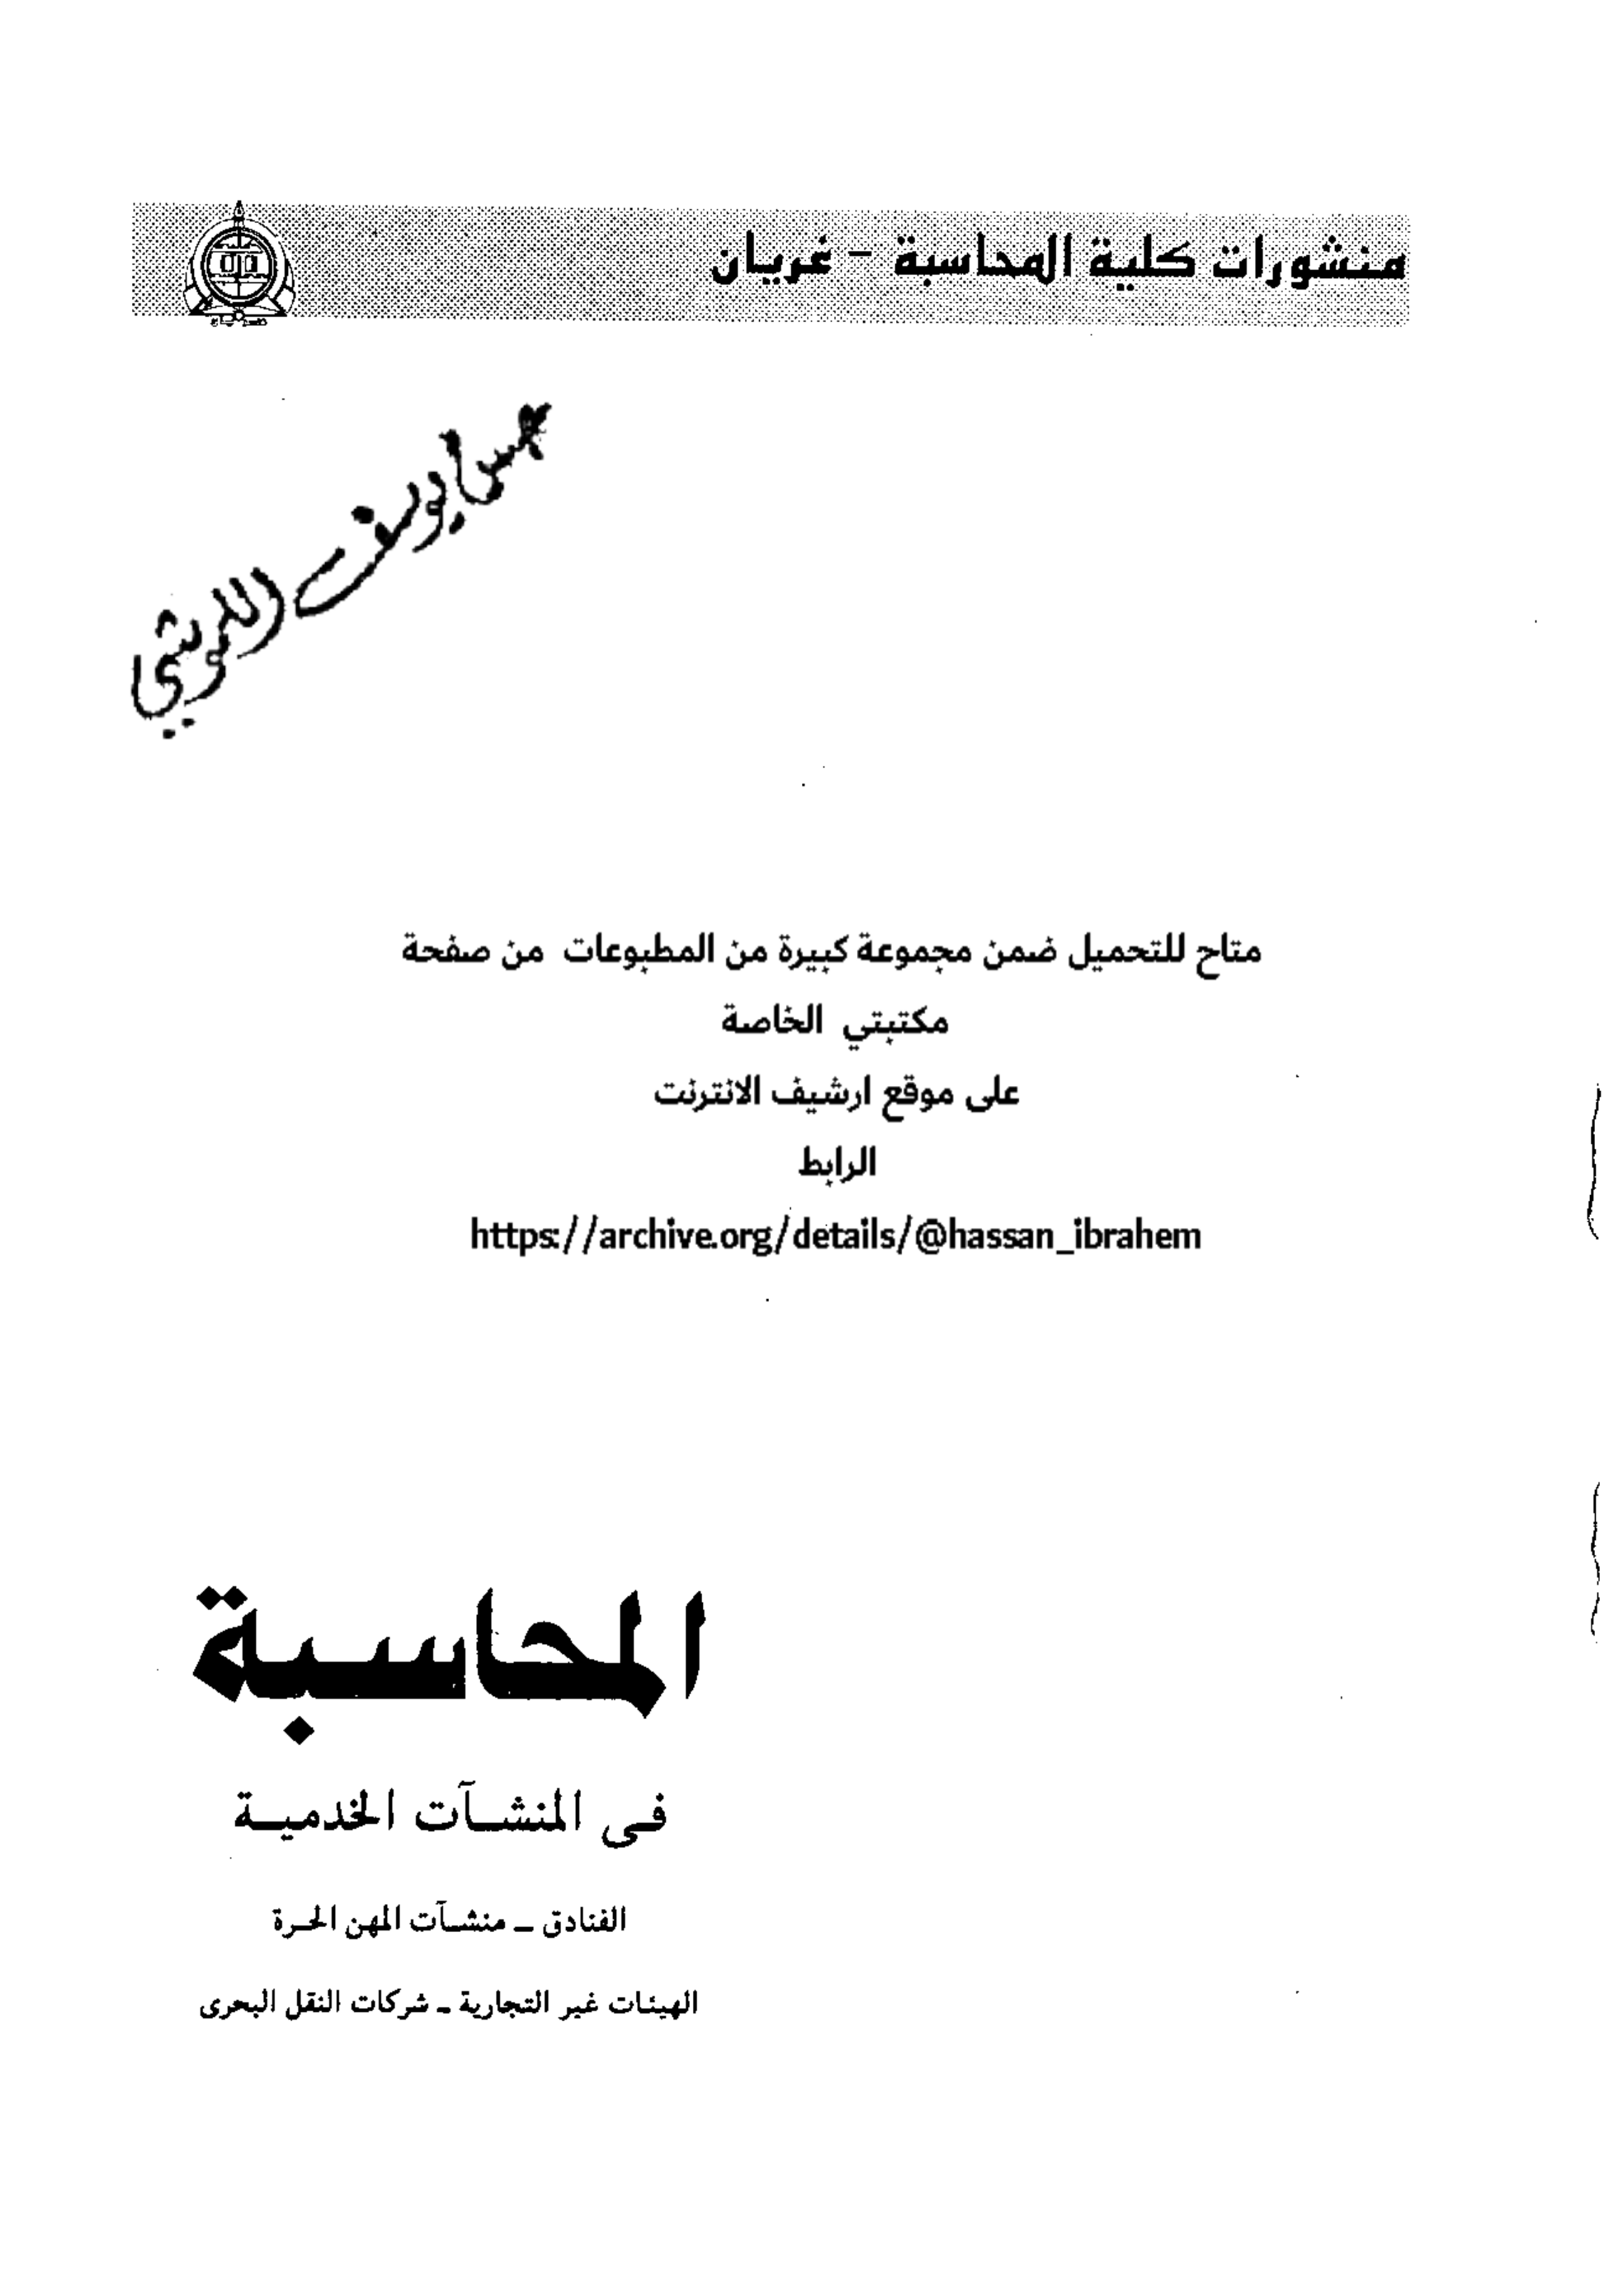 منشورات كلية المحاسبة - غريان
يوسف
متاح للتحميل ضمن مجموعة كبيرة من المطبوعات من صفحة
مكتبتي الخاصة
على موقع ارشيف الانترنت
الرابط
https://archive.org/details/@hassan_ibrahem
المحاسبة
فى المنشآت الخدمية
الفنادق - منشآت المهن الحرة
الهيئات غير التجارية - شركات النقل البحرى